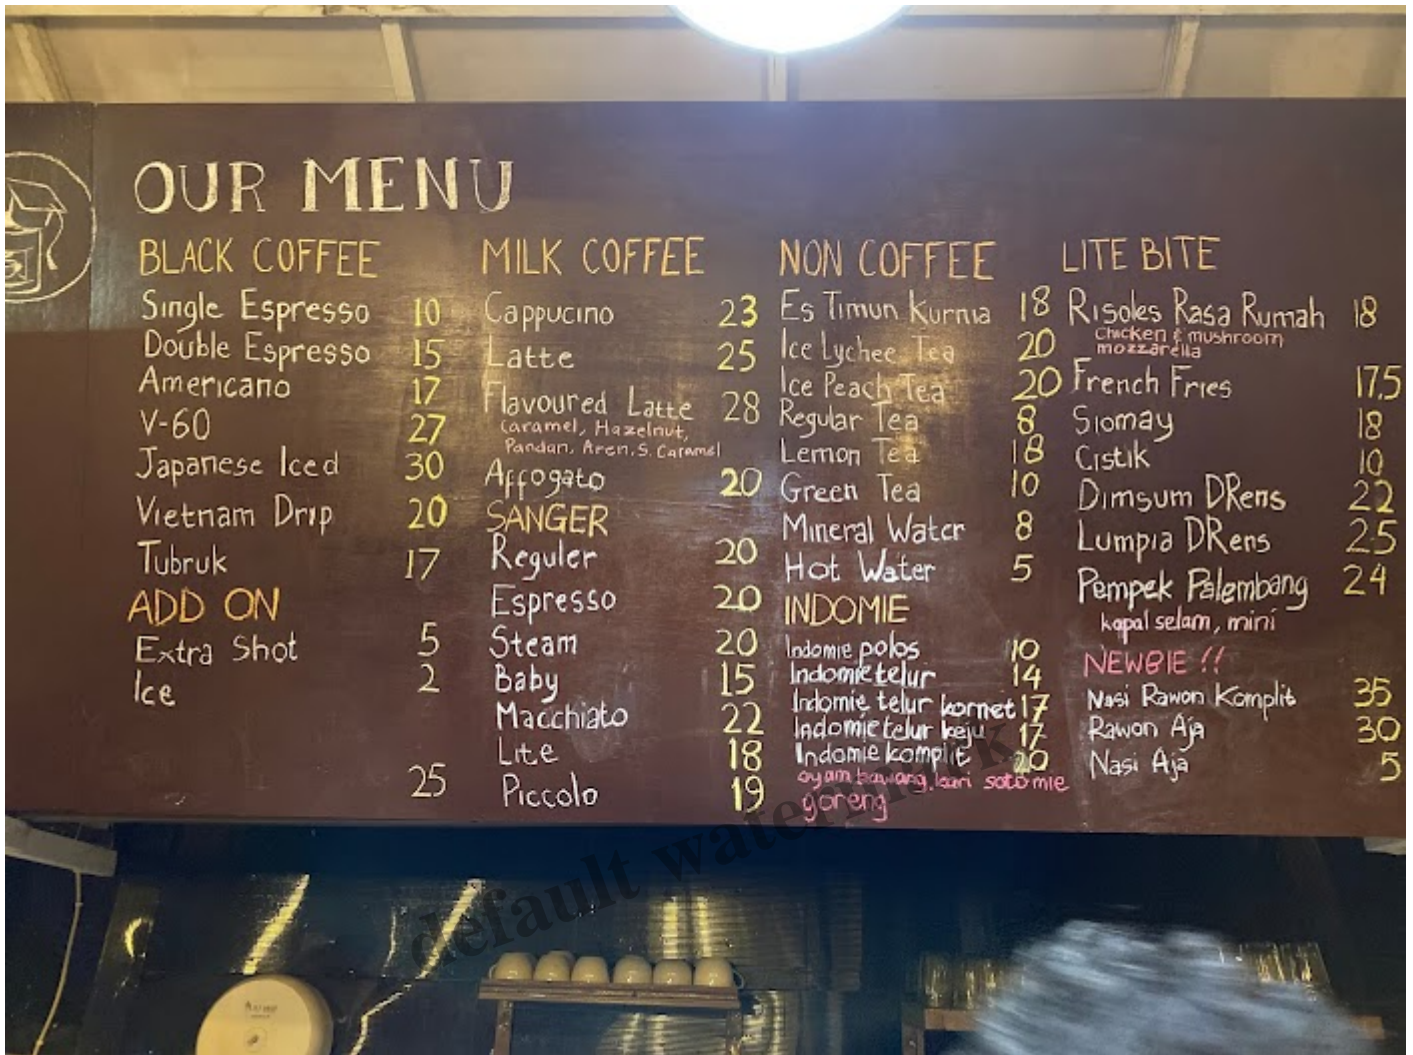 OUR MENU
BLACK COFFEE
Single Espresso 10
Double Espresso 15
Americano 17
V-60 27
Japanese Iced 30
Vietnam Drip 20
Tubruk 17
ADD ON
Extra Shot 5
Ice 2
25
MILK COFFEE
Cappucino 23
Latte 25
Flavoured Latte 28
Caramel, Hazelnut,
Pandan, Aren, S. Caramel
Affogato 20
SANGER
Reguler 20
Espresso 20
Steam 20
Baby 15
Macchiato 22
Lite 18
Piccolo 19
NON COFFEE
Es Timun Kurnia 18
Ice Lychee Tea 20
Ice Peach Tea 20
Regular Tea 8
Lemon Tea 18
Green Tea 10
Mineral Water 8
Hot Water 5
INDOMIE
Indomie polos 10
Indomie telur 14
Indomie telur kornet 17
Indomie telur keju 17
Indomie komplit 20
ayam bawang, kari soto mie
goreng
LITE BITE
Risoles Rasa Rumah 18
Chicken & mushroom
mozzarella
French Fries 17,5
Siomay 18
Cistik 10
Dimsum DRens 22
Lumpia DRens 25
Pempek Palembang 24
kapal selam, mini
NEWBIE !!
Nasi Rawon Komplit 35
Rawon Aja 30
Nasi Aja 5
default watermark